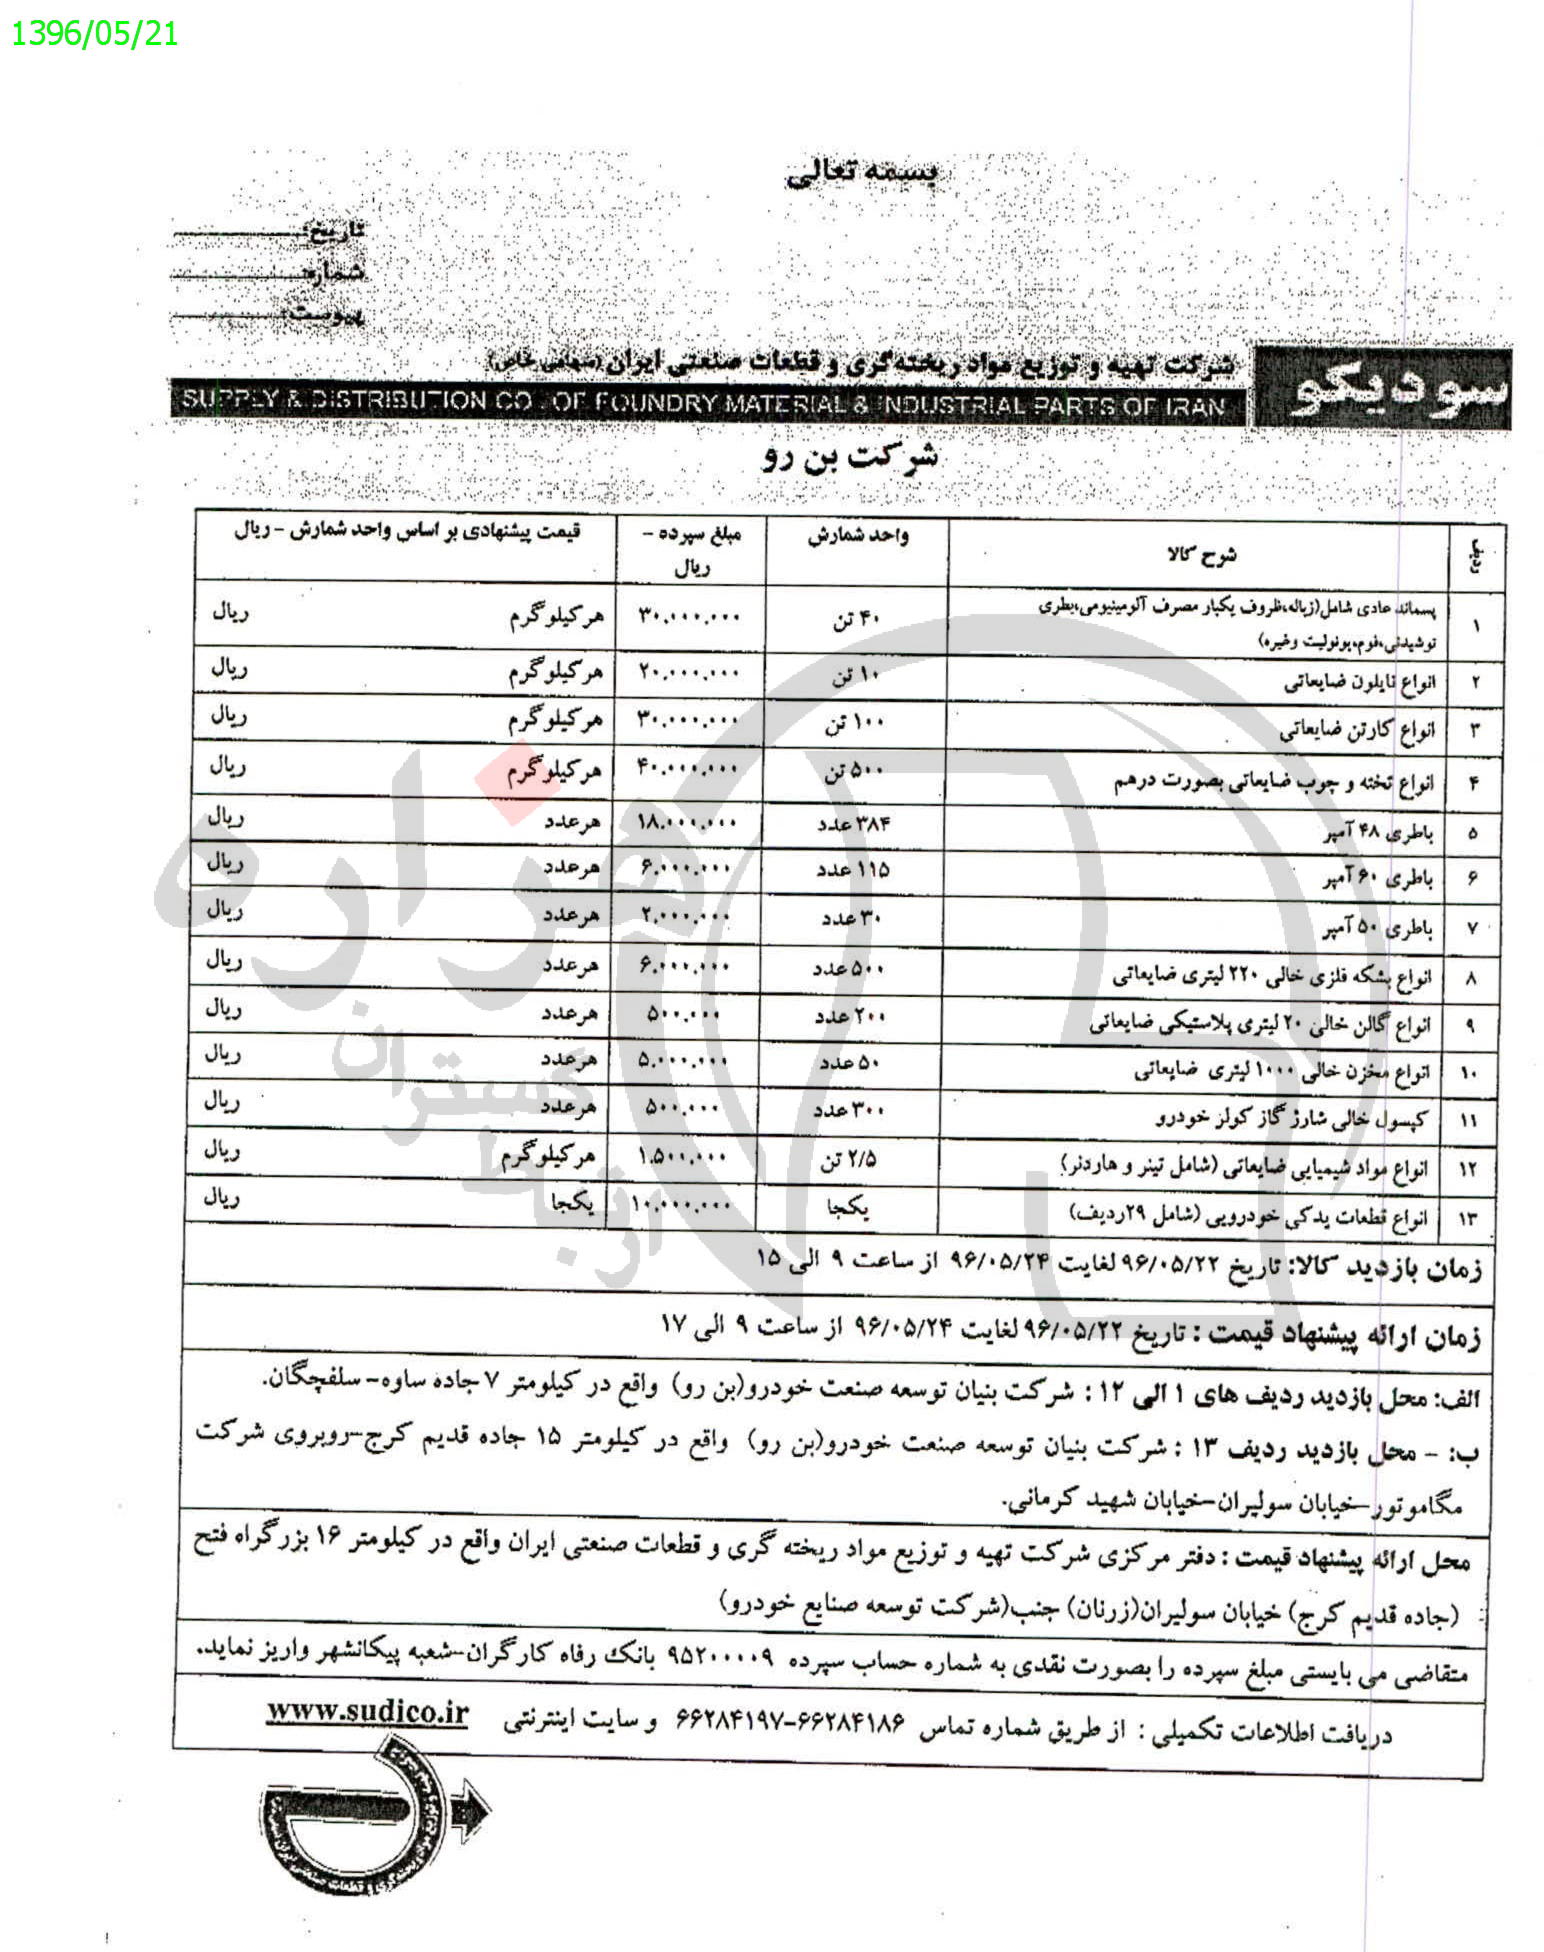 1396/05/21
بسمه تعالی
تاریخ:
شماره:
پیوست:
شرکت تهیه و توزیع مواد ریخته‌گری و قطعات صنعتی ایران (سهامی خاص)
سودیکو
SUPPLY & DISTRIBUTION CO. OF FOUNDRY MATERIAL & INDUSTRIAL PARTS OF IRAN
شرکت بن رو
ردیف شرح کالا واحد شمارش مبلغ سپرده – ریال قیمت پیشنهادی بر اساس واحد شمارش – ریال
۱ پسماند عادی شامل(زباله،ظروف یکبار مصرف آلومینیومی،بطری
نوشیدنی،فوم،یونولیت وغیره) ۴۰ تن ۳۰.۰۰۰.۰۰۰ هرکیلوگرم ریال
۲ انواع نایلون ضایعاتی ۱۰ تن ۲۰.۰۰۰.۰۰۰ هرکیلوگرم ریال
۳ انواع کارتن ضایعاتی ۱۰۰ تن ۳۰.۰۰۰.۰۰۰ هرکیلوگرم ریال
۴ انواع تخته و چوب ضایعاتی بصورت درهم ۵۰۰ تن ۴۰.۰۰۰.۰۰۰ هرکیلوگرم ریال
۵ باطری ۴۸ آمپر ۳۸۴ عدد ۱۸.۰۰۰.۰۰۰ هرعدد ریال
۶ باطری ۶۰ آمپر ۱۱۵ عدد ۶.۰۰۰.۰۰۰ هرعدد ریال
۷ باطری ۵۰ آمپر ۳۰ عدد ۲.۰۰۰.۰۰۰ هرعدد ریال
۸ انواع بشکه فلزی خالی ۲۲۰ لیتری ضایعاتی ۵۰۰ عدد ۶.۰۰۰.۰۰۰ هرعدد ریال
۹ انواع گالن خالی ۲۰ لیتری پلاستیکی ضایعاتی ۲۰۰ عدد ۵۰۰.۰۰۰ هرعدد ریال
۱۰ انواع مخزن خالی ۱۰۰۰ لیتری ضایعاتی ۵۰ عدد ۵.۰۰۰.۰۰۰ هرعدد ریال
۱۱ کپسول خالی شارژ گاز کولر خودرو ۳۰۰ عدد ۵۰۰.۰۰۰ هرعدد ریال
۱۲ انواع مواد شیمیایی ضایعاتی (شامل تینر و هاردنر) ۲/۵ تن ۱.۵۰۰.۰۰۰ هرکیلوگرم ریال
۱۳ انواع قطعات یدکی خودرویی (شامل ۲۹ردیف) یکجا ۱۰.۰۰۰.۰۰۰ یکجا ریال
زمان بازدید کالا: تاریخ ۹۶/۰۵/۲۲ لغایت ۹۶/۰۵/۲۴ از ساعت ۹ الی ۱۵
زمان ارائه پیشنهاد قیمت : تاریخ ۹۶/۰۵/۲۲ لغایت ۹۶/۰۵/۲۴ از ساعت ۹ الی ۱۷
الف: محل بازدید ردیف های ۱ الی ۱۲ : شرکت بنیان توسعه صنعت خودرو(بن رو) واقع در کیلومتر ۷ جاده ساوه– سلفچگان.
ب: – محل بازدید ردیف ۱۳ : شرکت بنیان توسعه صنعت خودرو(بن رو) واقع در کیلومتر ۱۵ جاده قدیم کرج–روبروی شرکت
مگاموتور–خیابان سولیران–خیابان شهید کرمانی.
محل ارائه پیشنهاد قیمت : دفتر مرکزی شرکت تهیه و توزیع مواد ریخته گری و قطعات صنعتی ایران واقع در کیلومتر ۱۶ بزرگراه فتح
(جاده قدیم کرج) خیابان سولیران(زرنان) جنب(شرکت توسعه صنایع خودرو)
متقاضی می بایستی مبلغ سپرده را بصورت نقدی به شماره حساب سپرده ۹۵۲۰۰۰۰۹ بانک رفاه کارگران–شعبه پیکانشهر واریز نماید.
دریافت اطلاعات تکمیلی : از طریق شماره تماس ۶۶۲۸۴۱۸۶–۶۶۲۸۴۱۹۷ و سایت اینترنتی www.sudico.ir
هزاره
ارتباط گستران